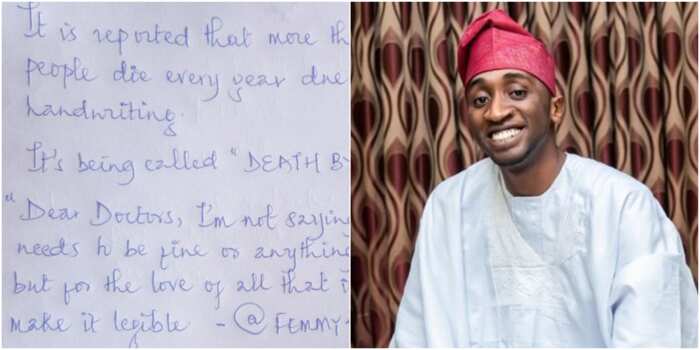 It is reported that more th
people die every year due
handwriting.
It's being called "DEATH BY
"Dear Doctors, I'm not saying
needs to be fine or anything
but for the love of all that i
make it legible - @FEMMY